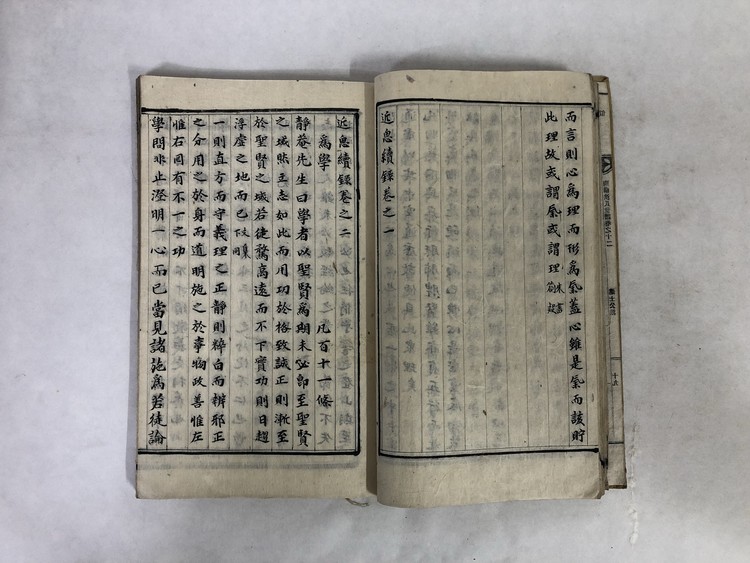 而言則心爲理而形爲氣蓋心雖是氣而該貯
此理故或謂氣或謂理
近思續錄卷之一
近思續錄卷之二
爲學 凡百十一條
靜菴先生曰學者以聖賢爲期未必卽至聖賢
之域然立志如此而用功於格致誠正則漸至
於聖賢之域若徒騖高遠而不下實功則日趨
浮虛之地而已本集下同
一則直方而守義理之正靜則粹白而辨邪正
之分用之於身而道明施之於事物故善惟左
惟右固有不一之功
學問非止澄明一心而已當見諸施爲若徒論